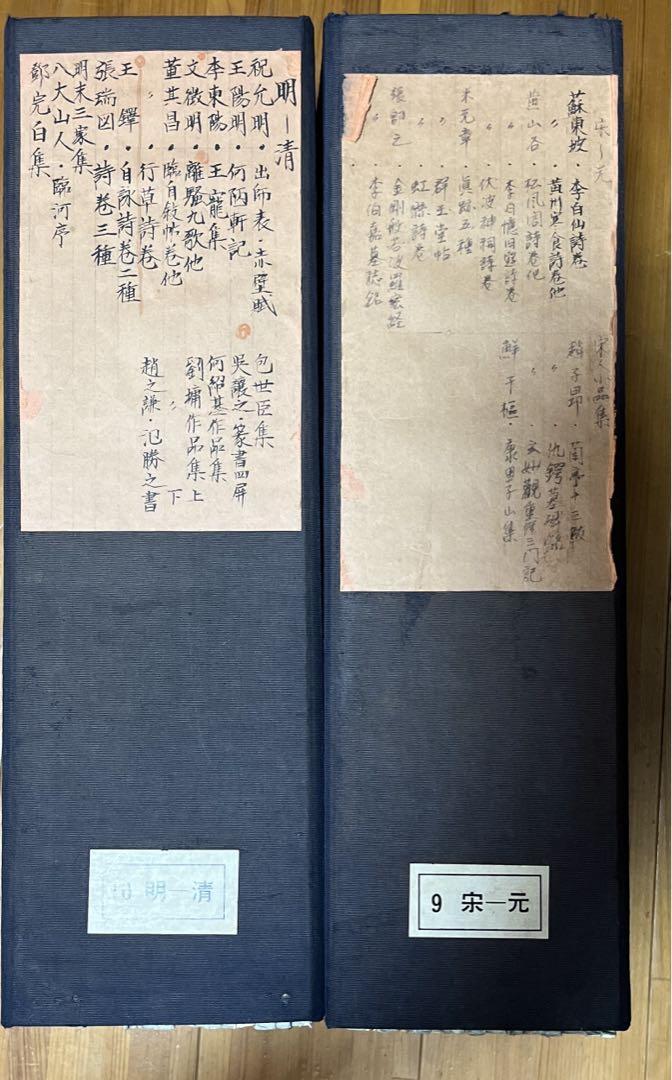 明―清
祝允明・出師表・赤壁賦
王陽明・何陋軒記
李東陽・王寵集
文徴明・離騒九歌他
董其昌・臨自叙帖巻他
〃・行草詩巻
王鐸・自詠詩巻二種
張瑞図・詩巻三種
明末三家集
八大山人・臨河序
鄧完白集
包世臣集
呉譲之・篆書四屏
何紹基作品集
劉墉作品集上
〃 下
趙之謙・氾勝之書
10 明―清
宋―元
蘇東坡・李白仙詩巻
〃・黄州寒食詩巻他
黄山谷・松風閣詩巻他
〃・李白憶旧遊詩巻
〃・伏波神祠詩巻
米元章・真跡五種
〃・群玉堂帖
〃・虹県詩巻
張即之・金剛般若波羅蜜経
〃・李伯嘉墓誌銘
宋人小品集
趙子昂・蘭亭十三跋
〃・仇鍔墓碑銘
〃・玄妙観重脩三門記
鮮于枢・康里子山集
9 宋―元